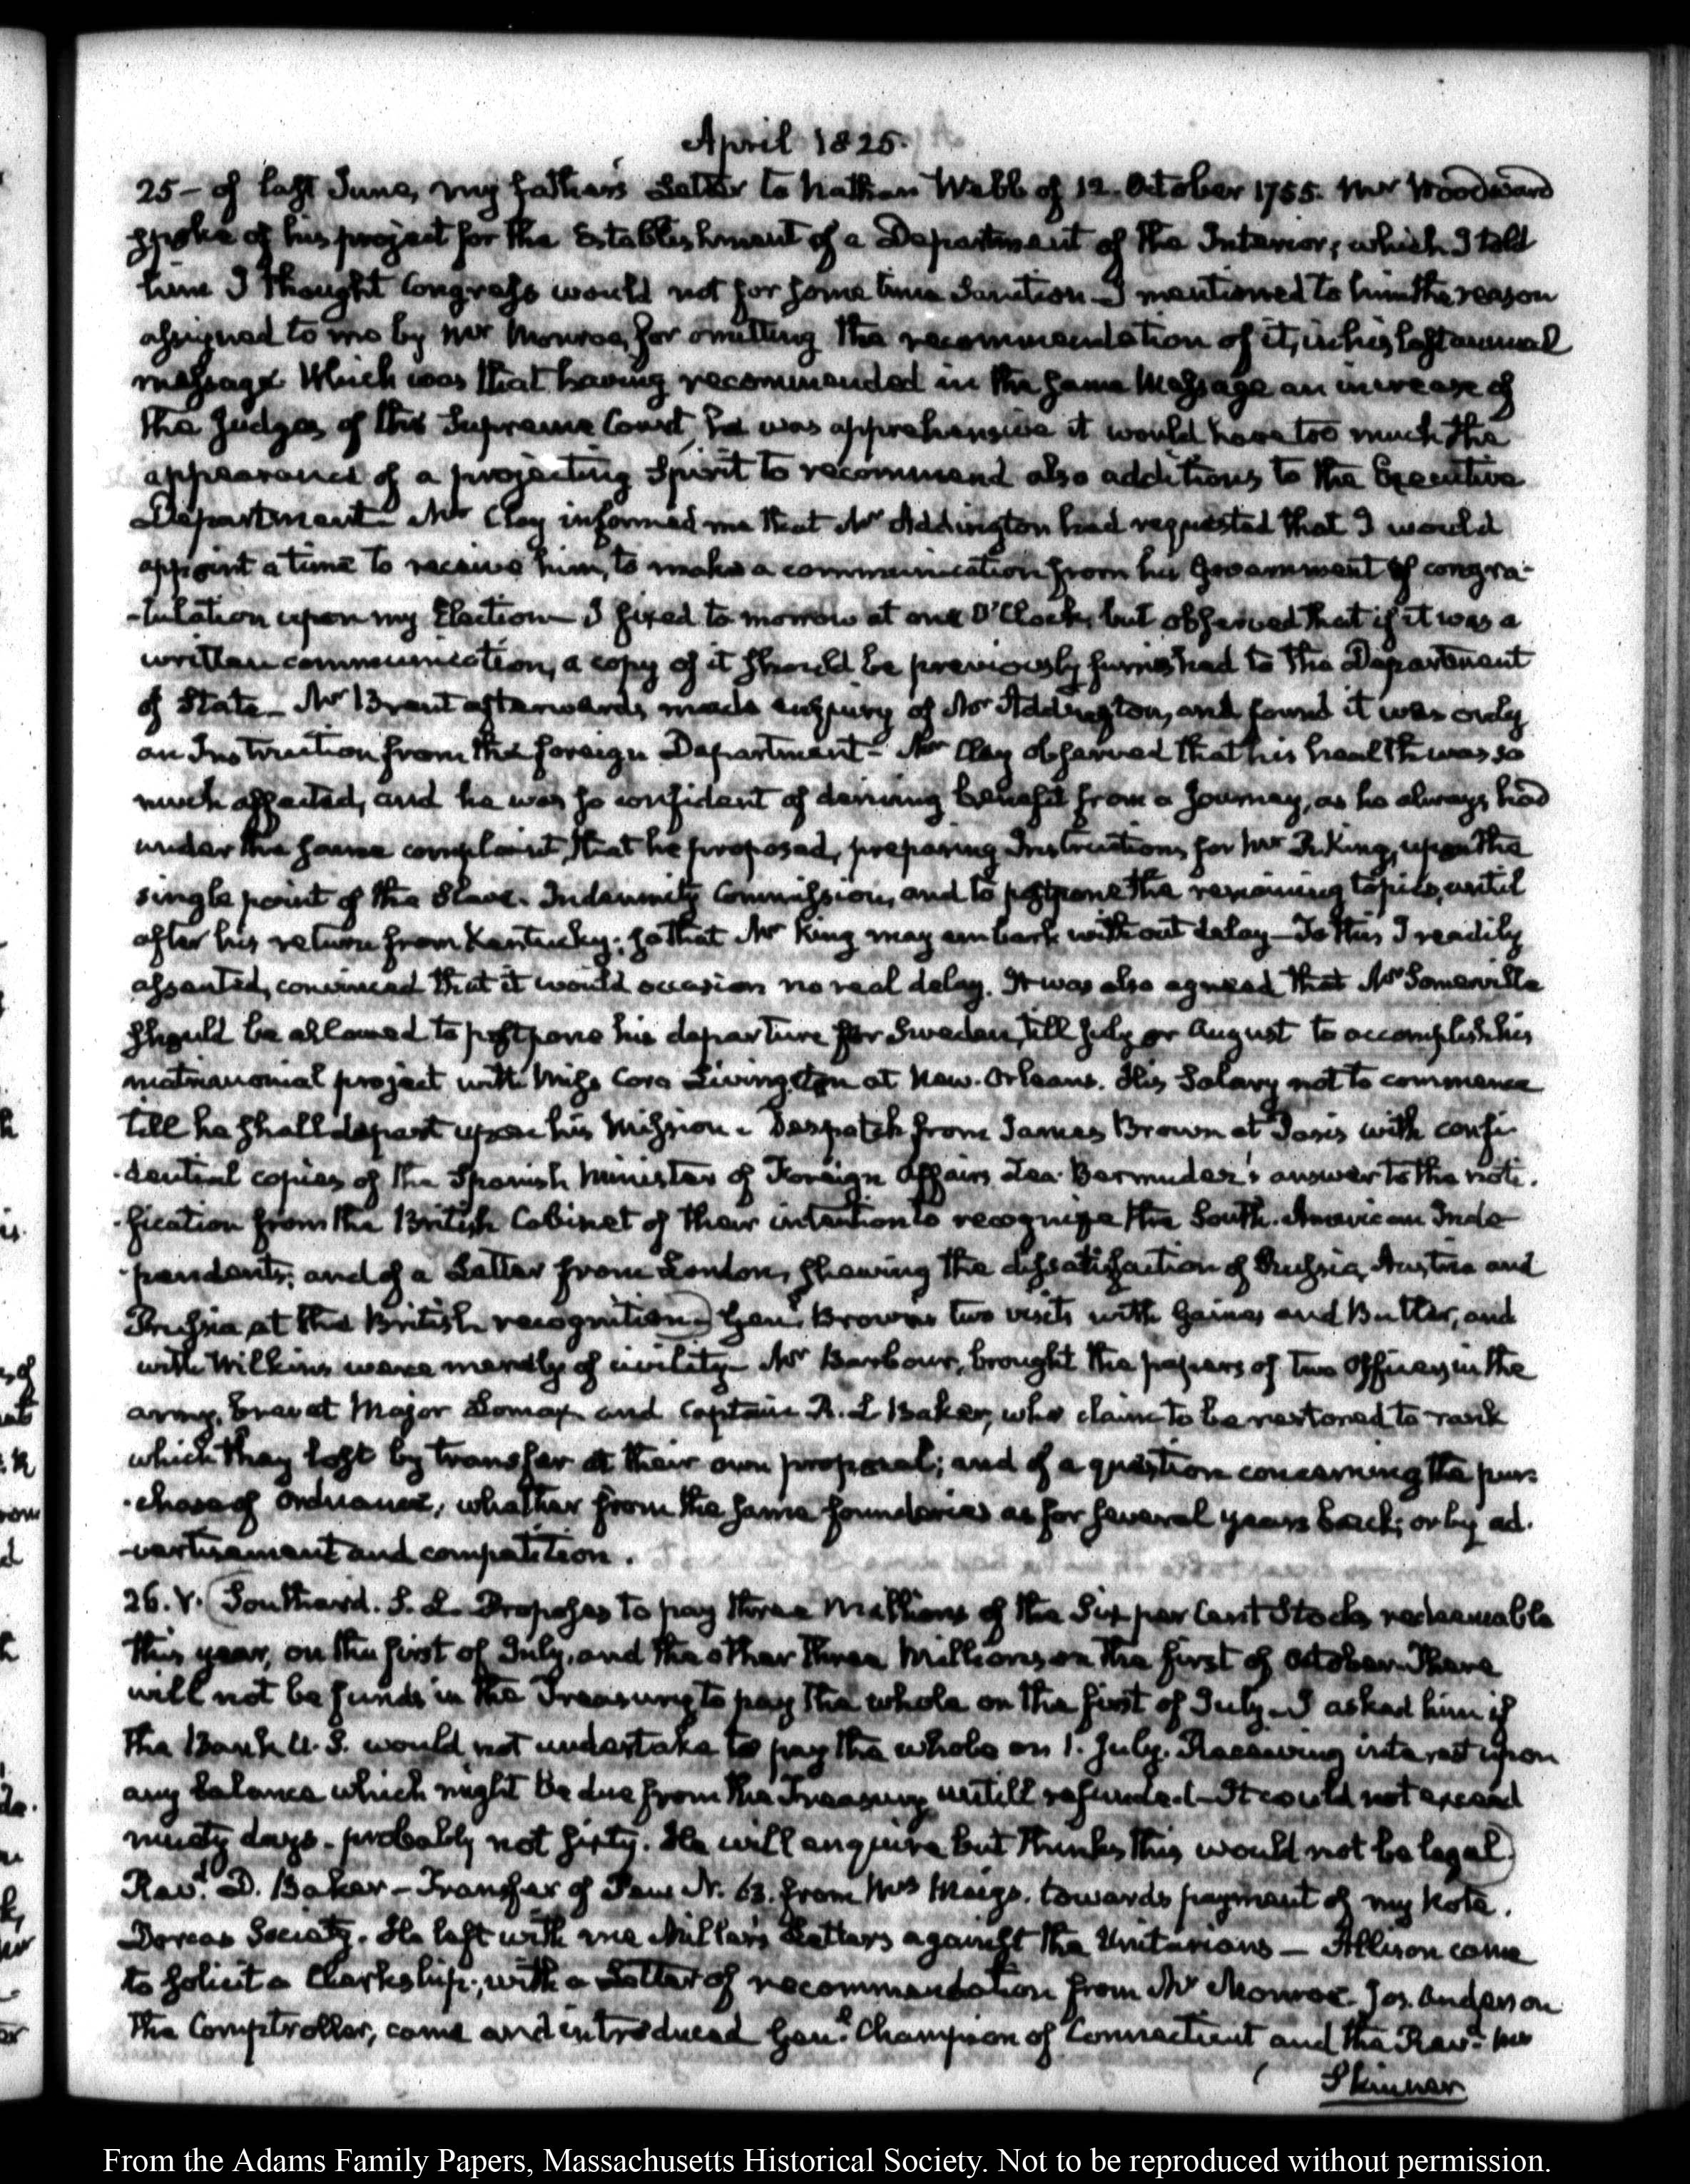 April 1825.
25 – of last June, my father's Letter to Nathan Webb of 12. October 1755. Mr Woodward
spoke of his project for the Establishment of a Department of the Interior; which I told
him I thought Congress would not for some time Sanction – I mentioned to him the reason
assigned to me by Mr Monroe, for omitting the recommendation of it, in his last annual
message. Which was that having recommended in the same Message an increase of
the Judges of the Supreme Court, he was apprehensive it would have too much the
appearance of a projecting Spirit to recommend also additions to the Executive
Department – Mr Clay informed me that Mr Addington had requested that I would
appoint a time to receive him, to make a communication from his Government of congra-
-tulation upon my Election – I fixed to morrow at one O'Clock, but observed that if it was a
written communication, a copy of it should be previously furnished to the Department
of State – Mr Brent afterwards made enquiry of Mr Addington, and found it was only
an Instruction from the foreign Department – Mr Clay observed that his health was so
much affected, and he was so confident of deriving benefit from a Journey, as he always had
under the same complaint, that he proposed, preparing Instructions for Mr R. King, upon the
single point of the Slave-Indemnity Commission, and to postpone the remaining topics, until
after his return from Kentucky; so that Mr King may embark without delay – To this I readily
assented, convinced that it would occasion no real delay. It was also agreed that Mr Somerville
should be allowed to postpone his departure for Sweden, till July or August to accomplish his
matrimonial project with Miss Cora Livingston at New-Orleans. His Salary not to commence
till he shall depart upon his Mission. Despatch from James Brown at Paris with confi-
-dential copies of the Spanish Minister of Foreign Affairs Zea Bermudez's answer to the noti-
-fication from the British Cabinet of their intention to recognize the South-American Inde-
-pendents; and of a Letter from London, shewing the dissatisfaction of Russia, Austria and
Prussia at the British recognition – Genl. Brown's two visits with Gaines and Butler, and
with Wilkins were merely of civility – Mr Barbour, brought the papers of two Officers in the
army, Brevet Major Lomax and Captain R. L Baker, who claim to be restored to rank
which they lost by transfer at their own proposal; and of a question concerning the pur-
-chase of Ordnance, whether from the same founderies as for several years back; or by ad-
-vertisement and competition.
26. V. Southard. S. L. Proposes to pay three Millions of the Six per Cent Stocks, redeemable
this year, on the first of July, and the other three Millions on the first of October. There
will not be funds in the Treasury to pay the whole on the first of July – I asked him if
the Bank U. S. would not undertake to pay the whole on 1. July. Receiving interest upon
any balance which might be due from the Treasury untill refunded – It could not exceed
ninety days – probably not sixty. He will enquire but thinks this would not be legal.
Revd. D. Baker – Transfer of Pew N. 63. from Mrs Meigs. towards payment of my Note.
Dorcas Society. He left with me Miller's Letters against the Unitarians – Allison came
to solicit a Clerkship; with a Letter of recommendation from Mr Monroe. Jos. Anderson
the Comptroller, came and introduced Genl. Champion of Connecticut and the Revd. Mr
Skinner
From the Adams Family Papers, Massachusetts Historical Society. Not to be reproduced without permission.